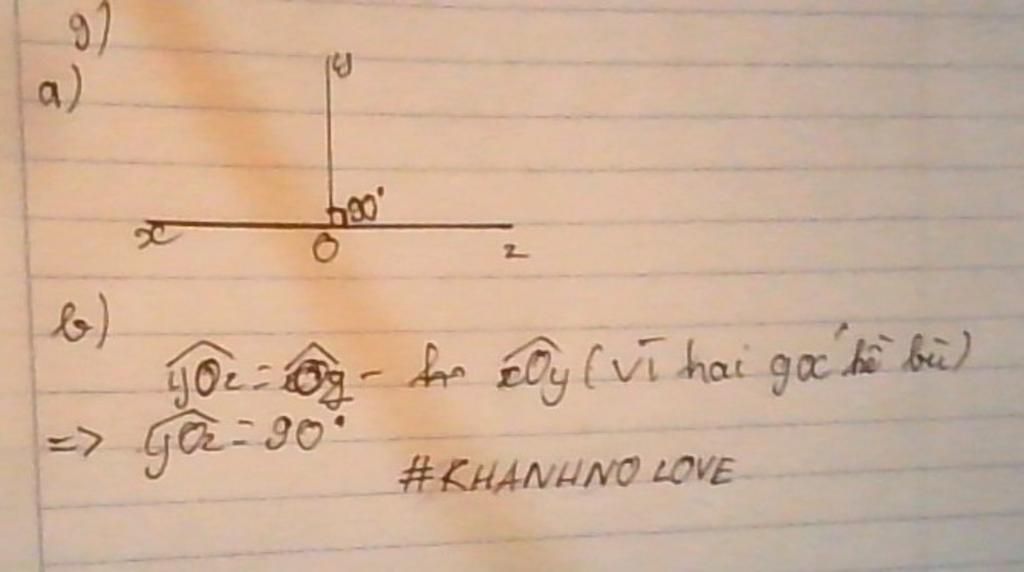 9)
a)
y
90°
x O z
b)
yOz = - xOy (vì hai góc kề bù)
=> yOz = 90°
#KHANHNO LOVE